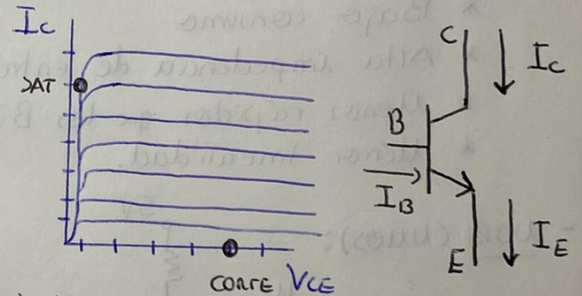 Ic
SAT
CORTE VCE
C
Ic
B
IB
E
IE